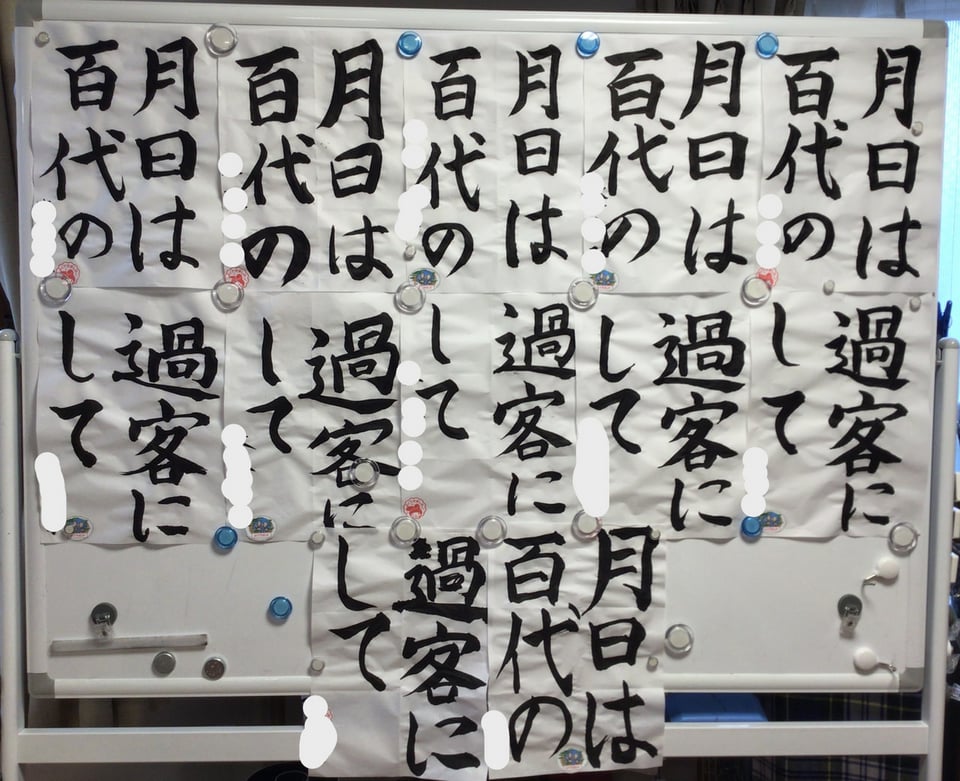 月日は
百代の
月日は
百代の
月日は
百代の
月日は
百代の
月日は
百代の
過客に
して
過客に
して
過客に
して
過客に
して
過客に
して
月日は
百代の
過客に
して